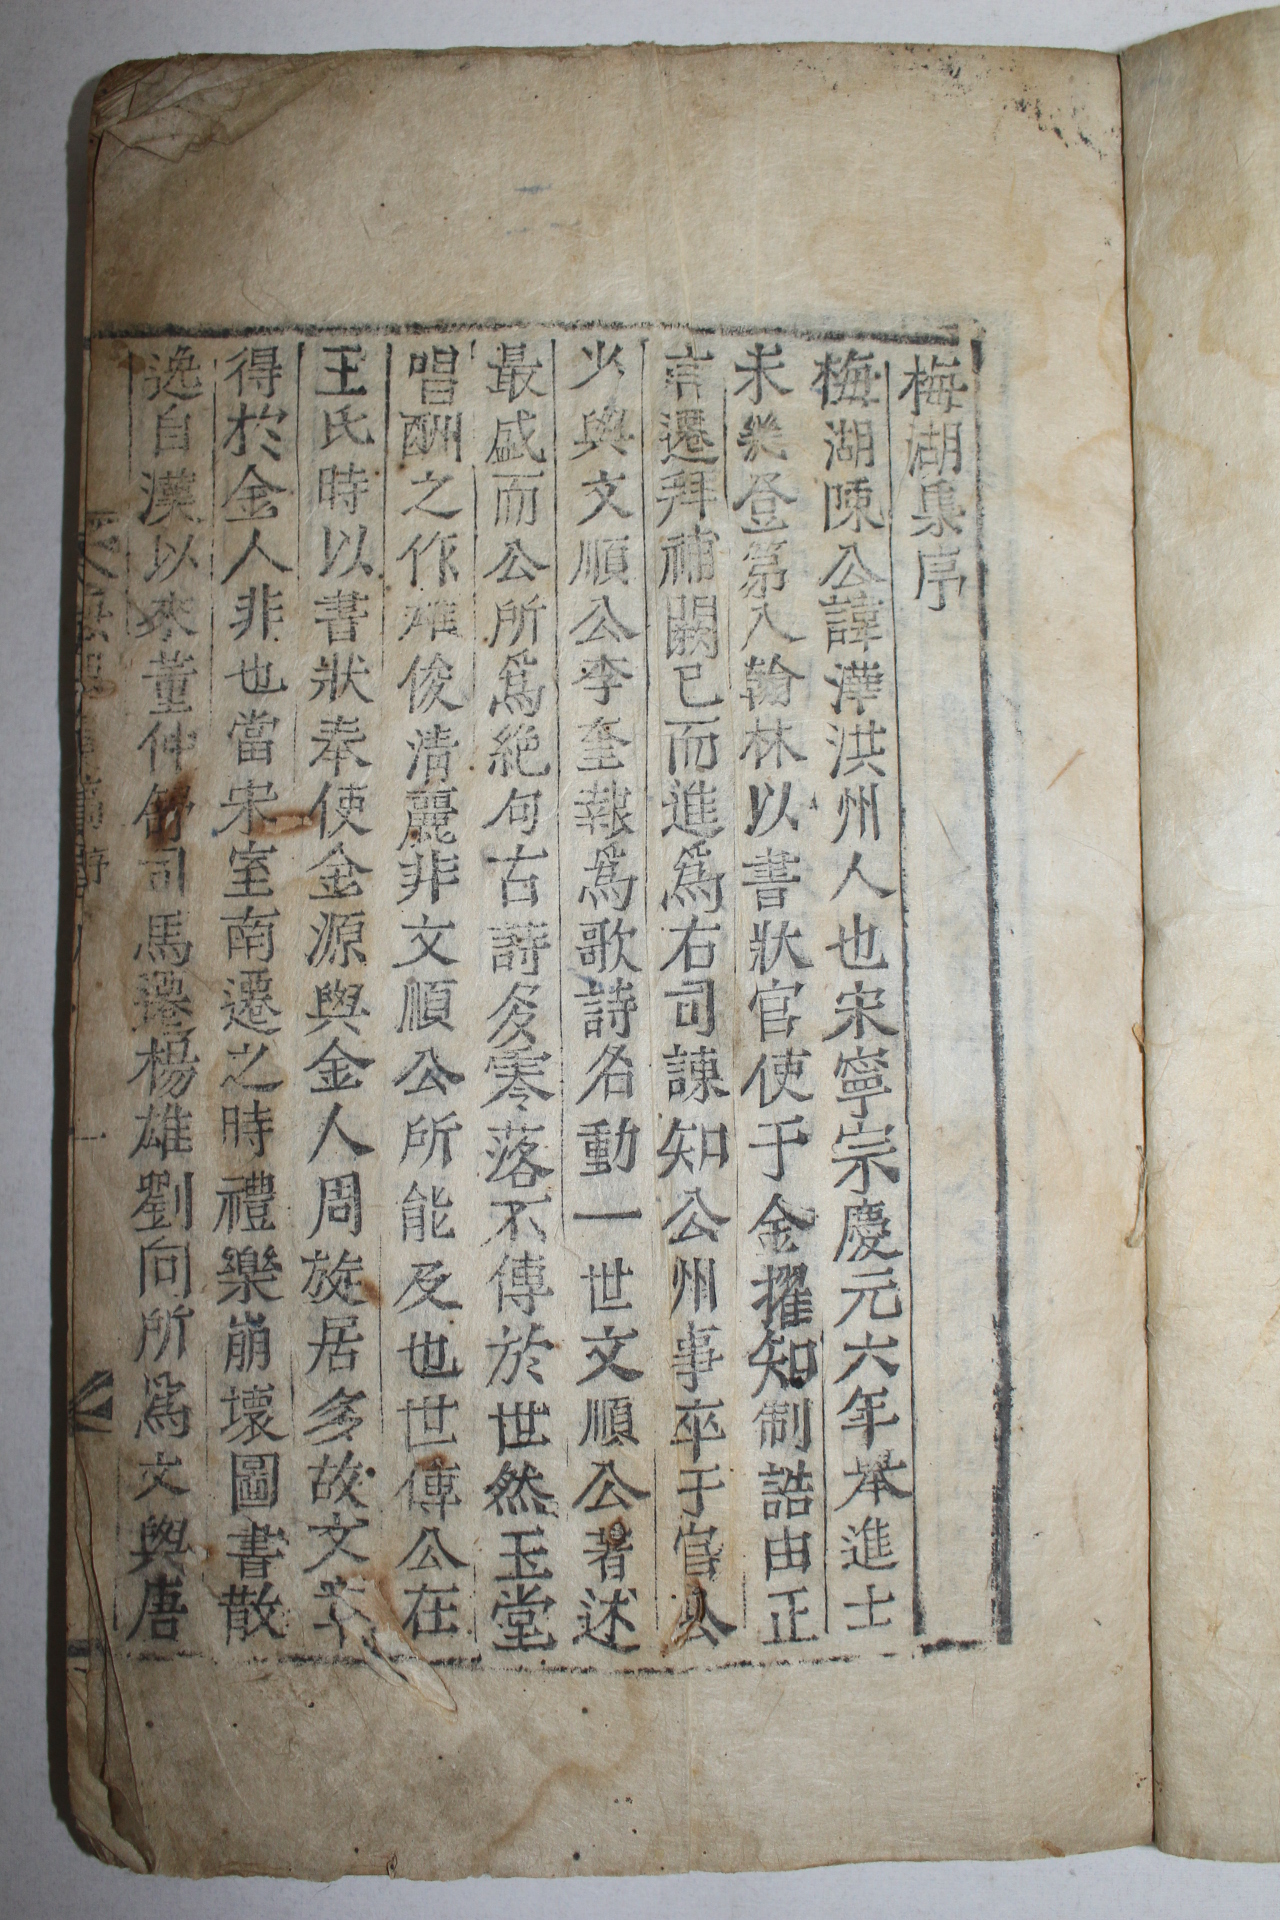 梅湖集序
梅湖陳公諱澕洪州人也宋寧宗慶元六年夲進士
未幾登第入翰林以書狀官使于金擢知制誥由正
言遷拜補闕已而進爲右司諫知公州事卒于官公
少與文順公李奎報爲歌詩名動一世文順公著述
最盛而公所爲絶句古詩多零落不傳於世然玉堂
唱酬之作雄俊淸麗非文順公所能及也世傳公在
王氏時以書狀奉使金源與金人周旋居多故文字
得於金人非也當宋室南遷之時禮樂崩壞圖書散
逸自漢以來董仲舒司馬遷楊雄劉向所爲文與唐
序
一